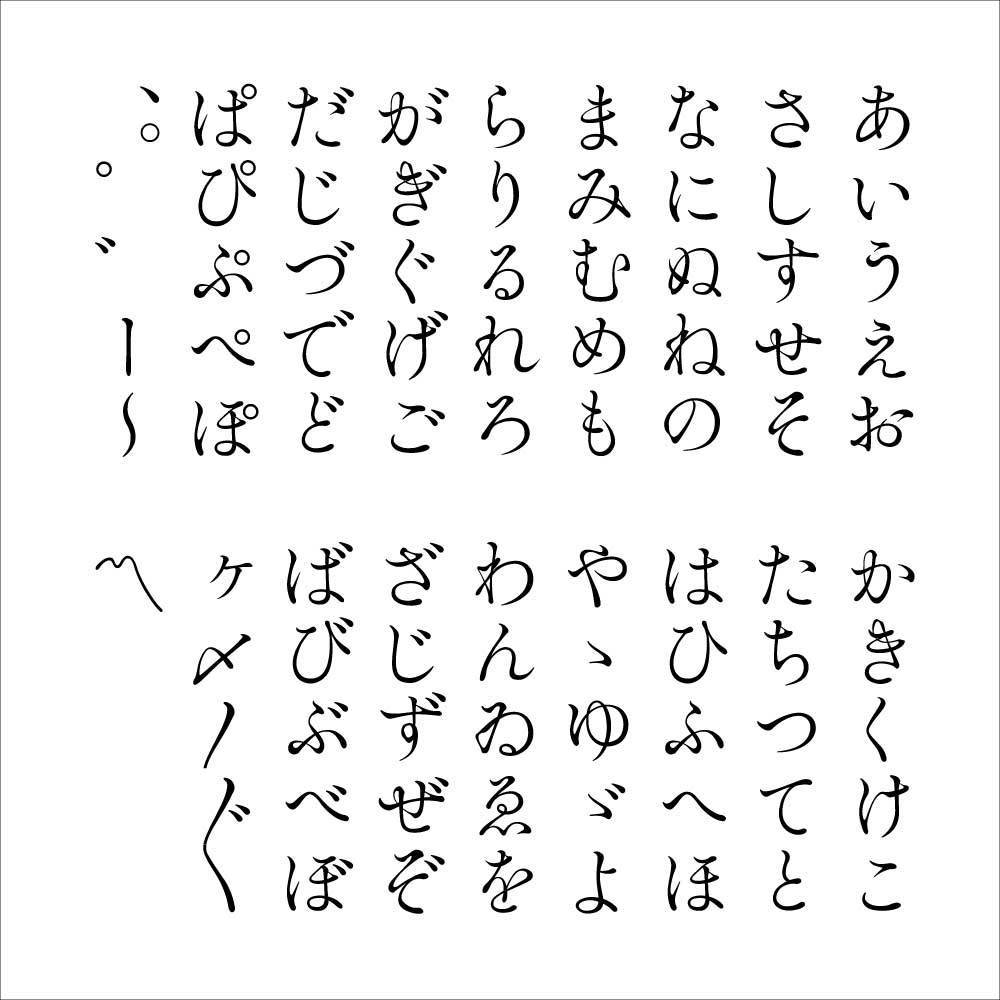 あいうえお
かきくけこ
さしすせそ
たちつてと
なにぬねの
はひふへほ
まみむめも
やゝゆゞよ
らりるれろ
わんゐゑを
がぎぐげご
ざじずぜぞ
だじづでど
ばびぶべぼ
ぱぴぷぺぽ
ヶ〆〳〴〵
、。゜゛ー〜
〽